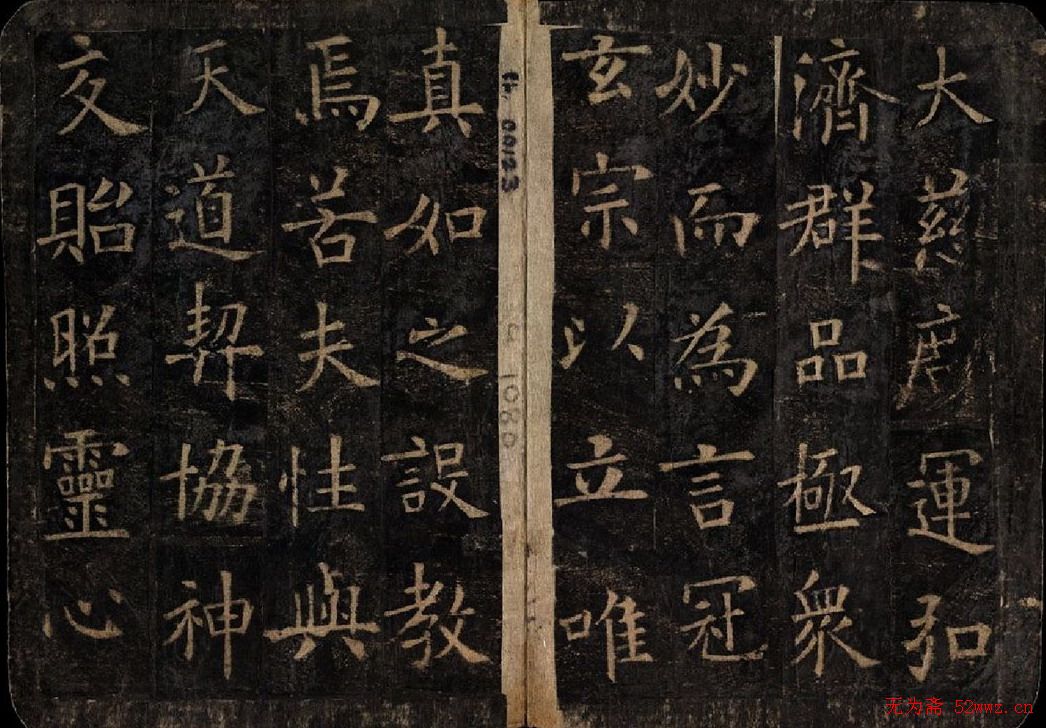 大慈運弘
濟群品極衆
妙而為言冠
玄宗以立唯
00123
1080
真如之設教
焉若夫性與
天道契協神
交貽照靈心
无为斋 52wwz.cn